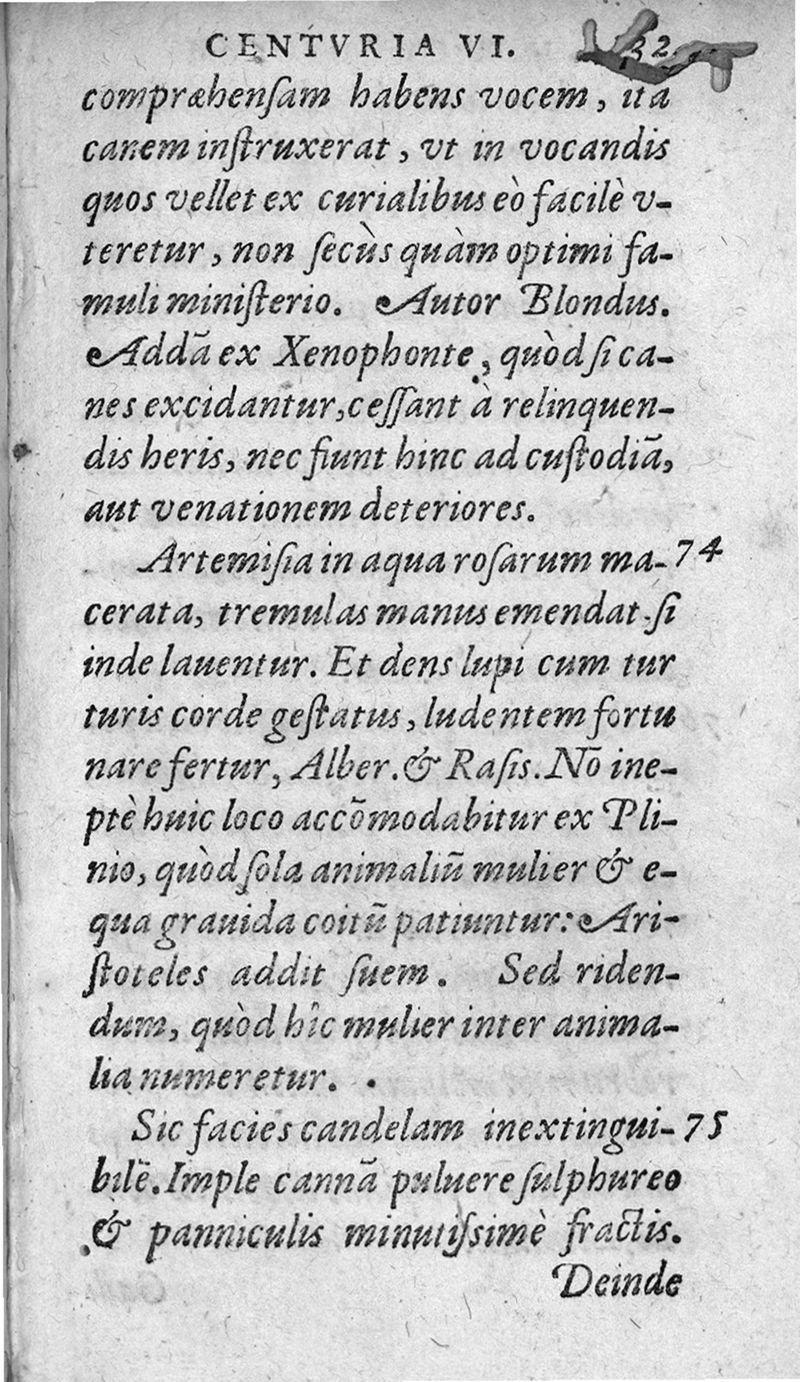 CENTVRIA VI. 32.
compræhenſam habens vocem, ita
canem inſtruxerat, vt in vocandis
quos vellet ex curialibus eò facilè v-
teretur, non ſecùs quàm optimi fa-
muli miniſterio. Autor Blondus.
Addā ex Xenophonte, quòd ſi ca-
nes excidantur, ceſſant à relinquen-
dis heris, nec fiunt hinc ad cuſtodiā,
aut venationem deteriores.
Artemiſia in aqua roſarum ma- 74
cerata, tremulas manus emendat ſi
inde lauentur. Et dens lupi cum tur
turis corde geſtatus, ludentem fortu
nare fertur, Alber. & Raſis. Nō ine-
ptè huic loco accōmodabitur ex Pli-
nio, quòd ſola animaliū mulier & e-
qua grauida coitū patiuntur: Ari-
ſtoteles addit ſuem. Sed riden-
dum, quòd hîc mulier inter anima-
lia numeretur.
Sic facies candelam inextingui- 75
bilē. Imple cannā puluere ſulphureo
& panniculis minutiſsimè fractis.
Deinde